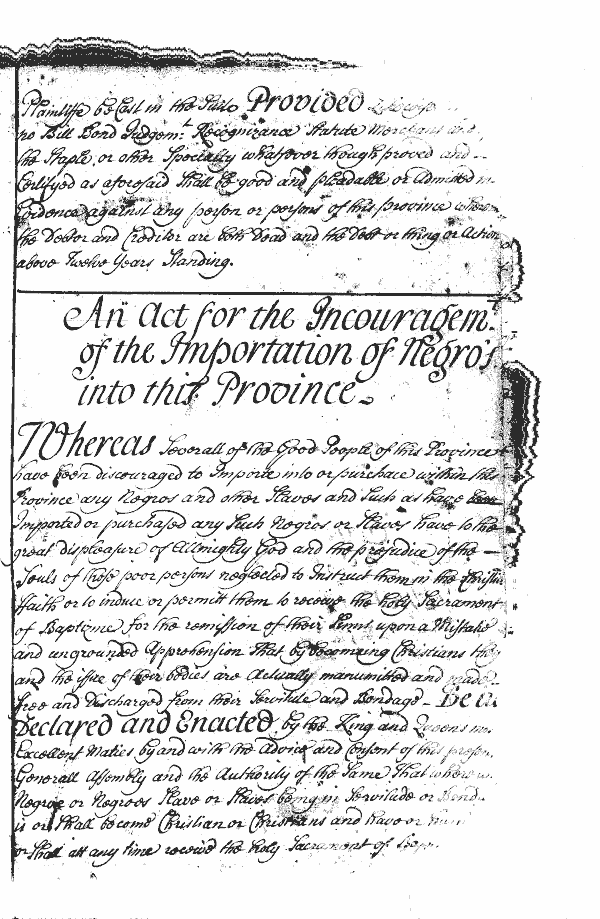 Plaintife be Cast in the Suite Provided
no Bill Bond Judgemt. Recognizance Statute Merchant
the Staple, or other Specialty whatsoever though proved and
Certifyed as aforesaid Shall be good and pleadable or Admitted in
Evidence against any person or persons of this province where
the Debtor and Creditor are both Dead and the Debt or thing or Action
above Twelve Years Standing.
An Act for the Incouragemt.
of the Importation of Negro's
into this Province
Whereas Severall of the Good People of this Province
have been discouraged to Importe into or purchace within this
Province any Negros and other Slaves and Such as have been
Imported or purchased any Such Negros or Slaves have to the
great displeasure of Allmighty God and the prejudice of the
Souls of those poor persons neglected to Instruct them in the Christian
ffaith or to induce or permitt them to receive the holy Sacrament
of Baptizme for the remission of their Sinns upon a Mistake
and ungrounded Apprehension that by becomeing Christians they
and the issue of their bodies are Actually manumitted and made
free and Discharged from their Servitude and Bondage Be it
Declared and Enacted by the King and Queens
Excellent Maties by and with the Advice and Consent of this
Generall Assembly and the Authority of the Same That where
Negroe or Negroes Slave or Slaves being in Servitude or Bond
is or Shall become Christian or Christians and have or
or Shall att any time receive the holy Sacrament of